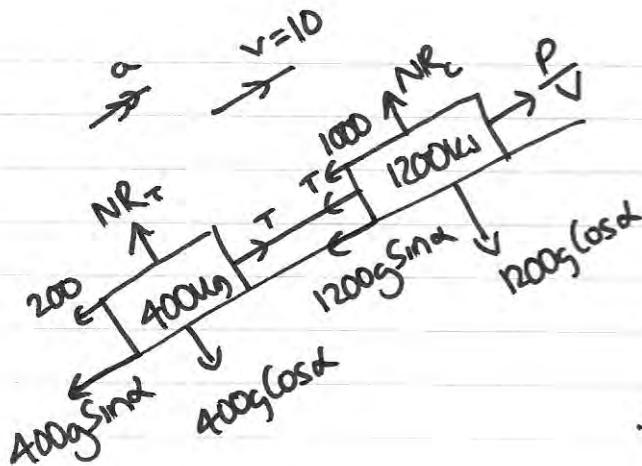 a
v=10
NRc
P/V
1000
1200kg
T
NRT
T
200
400kg
1200gSinα
1200gCosα
400gSinα
400gCosα